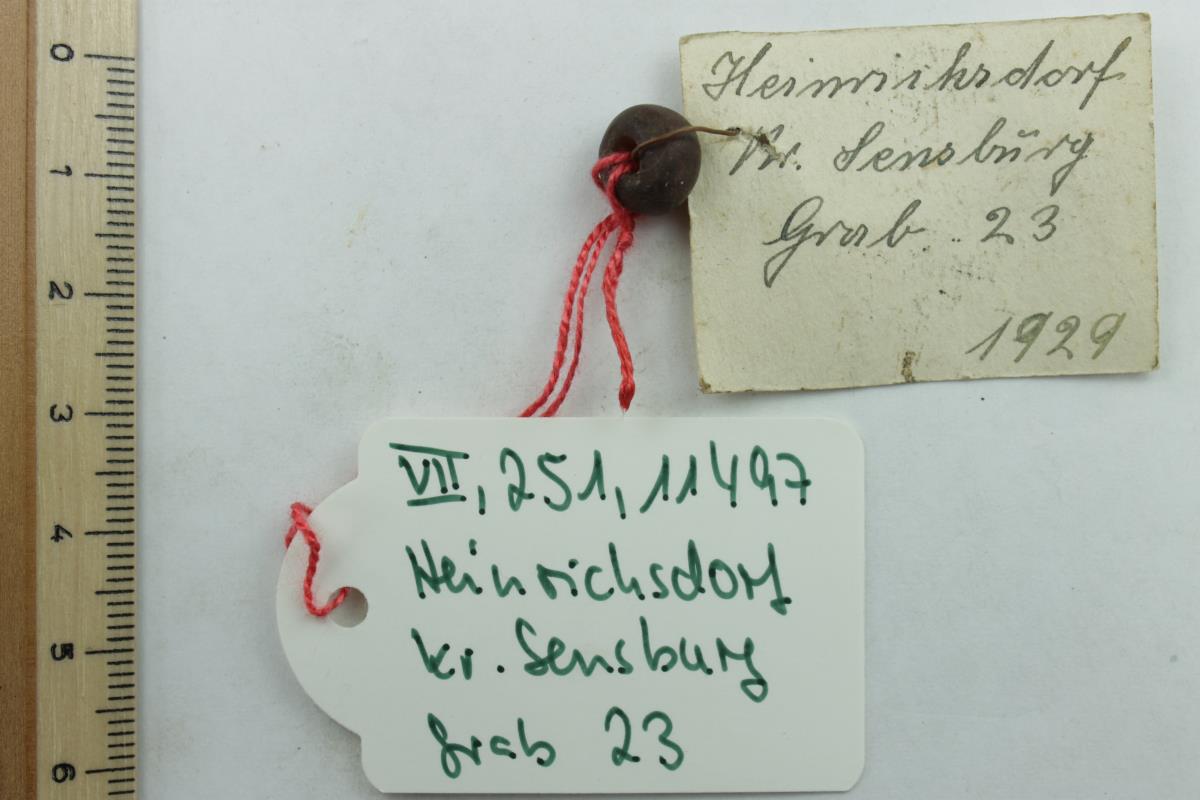 Heinrichsdorf
Kr. Sensburg
Grab 23
1929
VII, 251, 11497
Heinrichsdorf
Kr. Sensburg
Grab 23
0
1
2
3
4
5
6